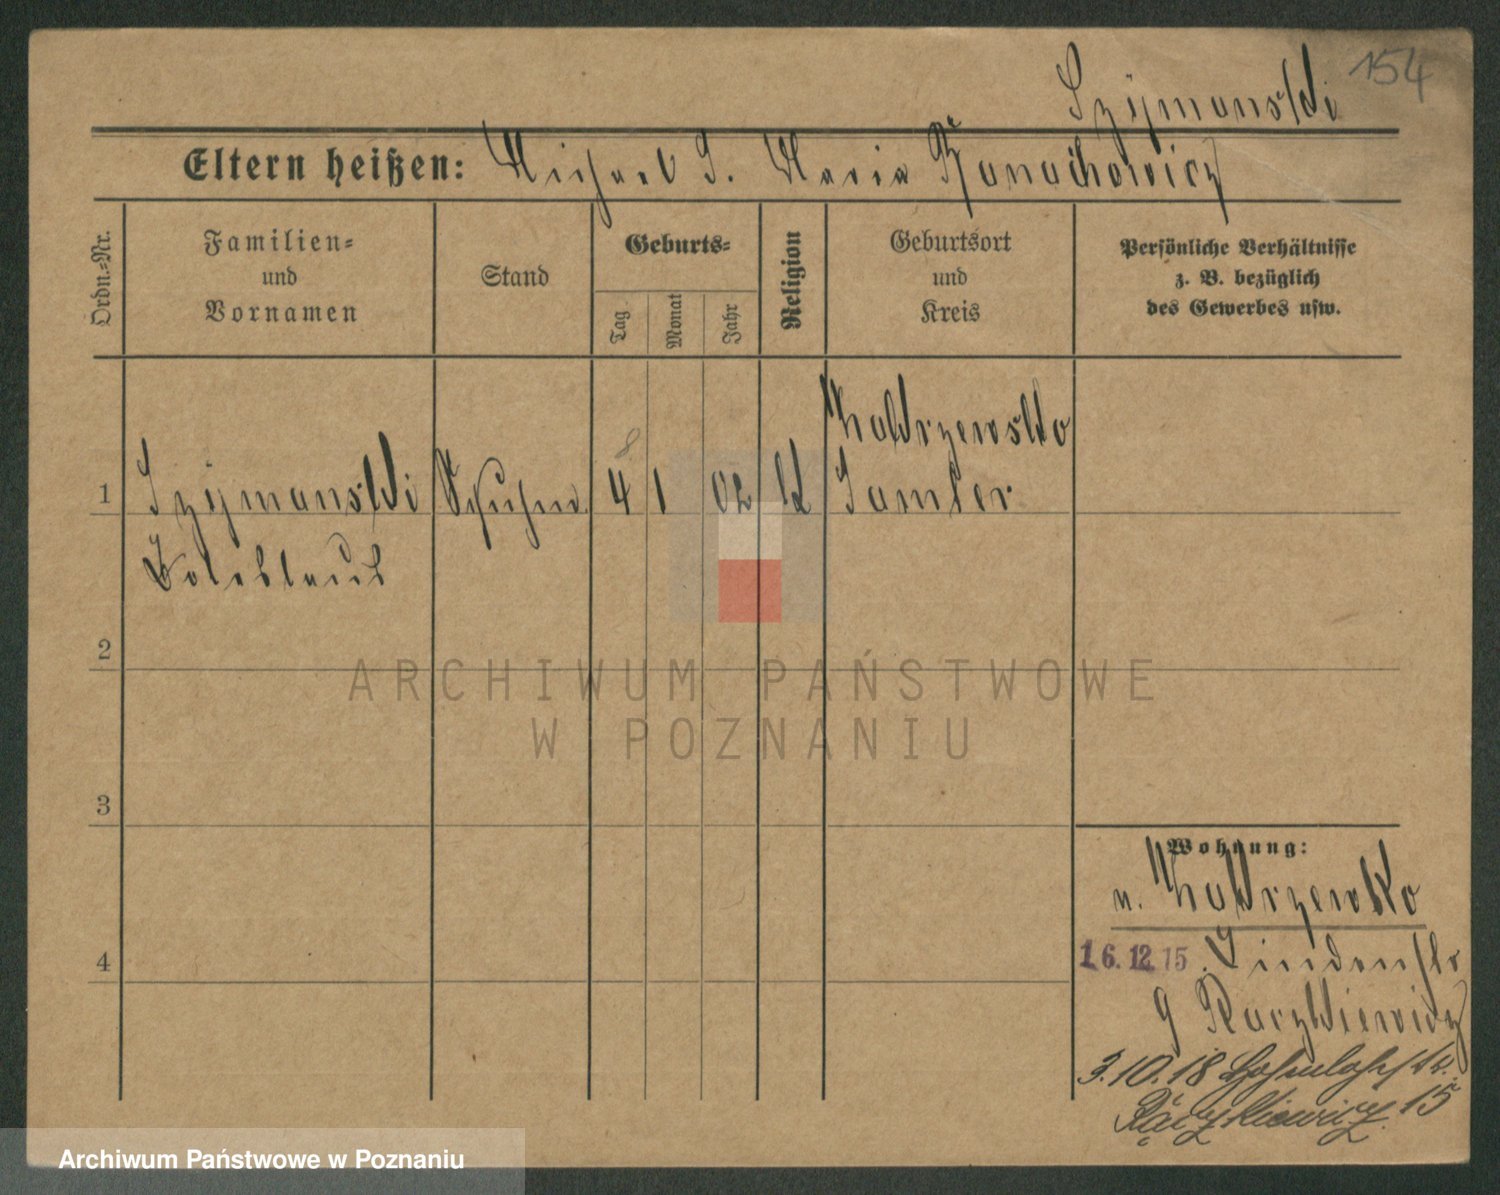 154
Szymanski
Eltern heißen: Michael S. Maria
Ordn.=Nr.
Familien=
und
Vornamen
Stand
Geburts=
Tag
Monat
Jahr
Religion
Geburtsort
und
Kreis
Persönliche Verhältnisse
z. B. bezüglich
des Gewerbes usw.
8
1 Szymanski Schuhm. 4 1 02 k Samter
Boleslaus
2
3
4
Wohnung:
n.
16.12.15. Lindenstr
9 Raczkiewicz
3.10.18
Raczkiewicz. 15
ARCHIWUM PAŃSTWOWE
W POZNANIU
Archiwum Państwowe w Poznaniu